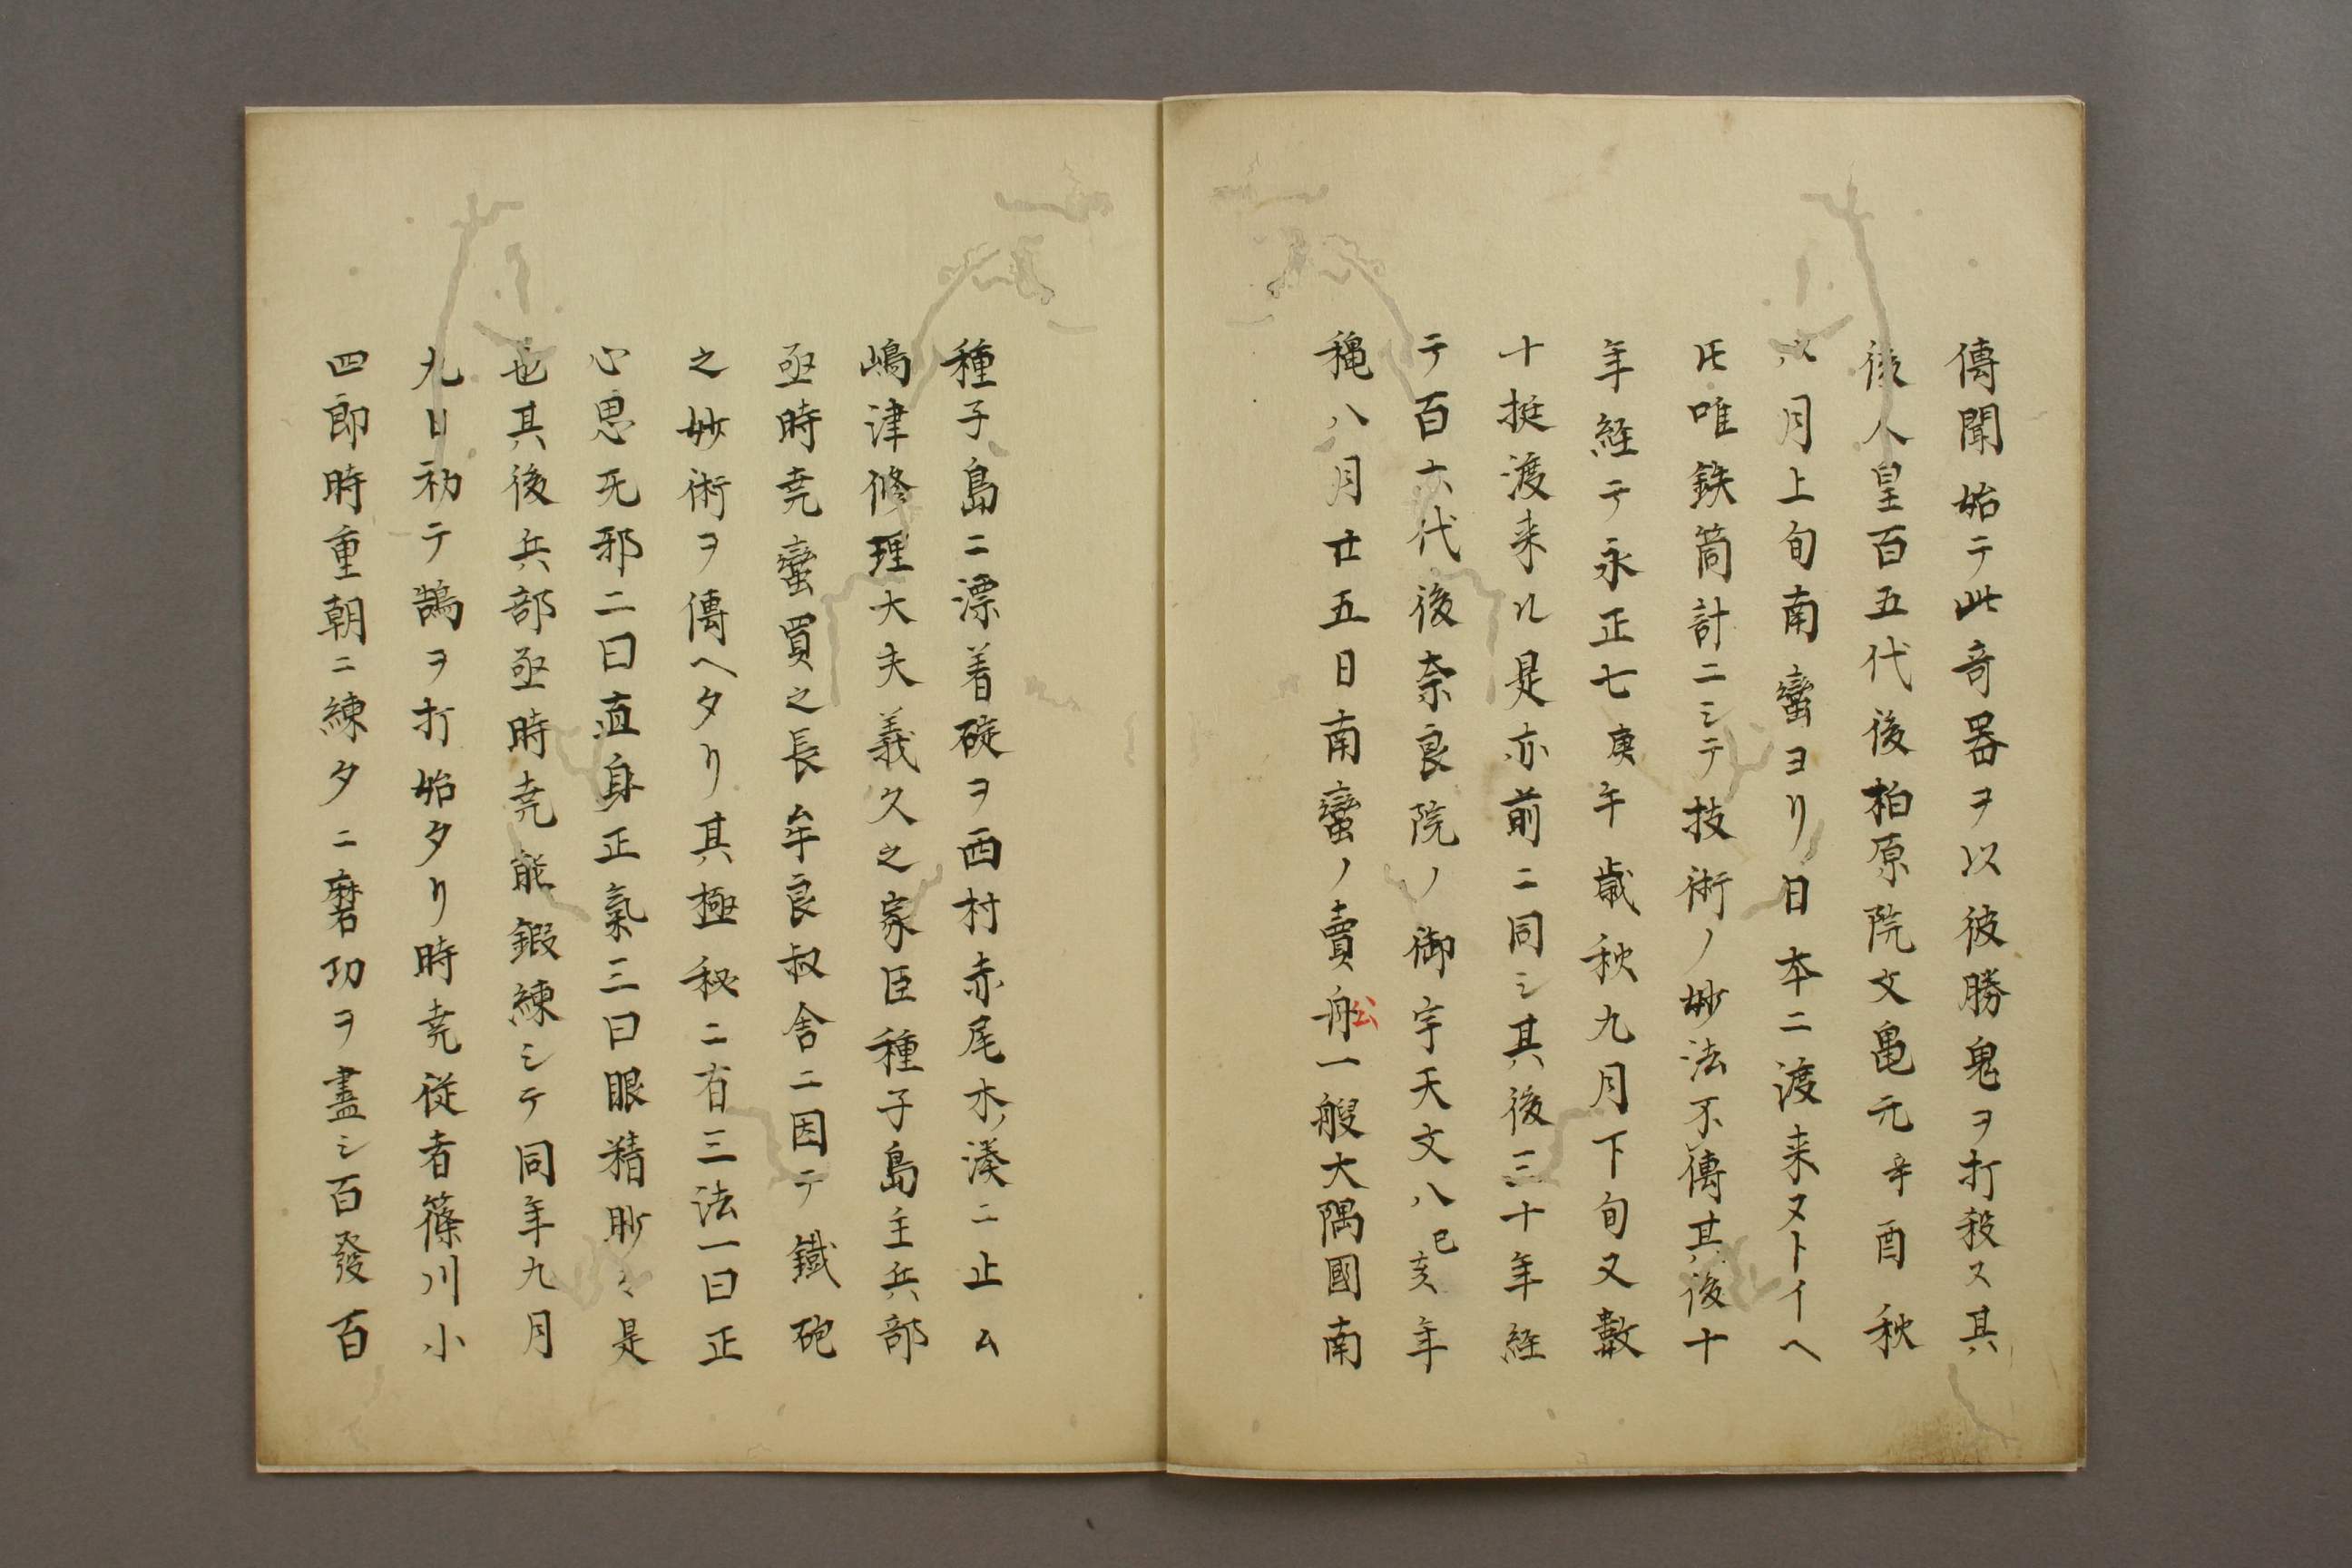 傳聞始テ此奇器ヲ以彼勝鬼ヲ打殺ス其
後人皇百五代後柏原院文亀元辛酉秋
八月上旬南蠻ヨリ日本ニ渡来ヌトイヘ
𪜈唯鉄筒計ニシテ技術ノ妙法不傳其後十
年経テ永正七庚午歳秋九月下旬又數
十挺渡来ル是亦前ニ同シ其後三十年経
テ百六代後奈良院ノ御宇天文八己亥年
穐八月廿五日南蠻ノ賣舩一艘大隅國南
種子島ニ漂着碇ヲ西村赤尾木湊ニ止ム
嶋津修理大夫義久之家臣種子島主兵部
亟時尭蠻買之長牟良叔舎ニ因テ鐵砲
之妙術ヲ傳ヘタリ其極秘ニ有三法一曰正
心思无邪二曰直身正氣三曰眼精眇々是
也其後兵部亟時尭能鍛練シテ同年九月
九日初テ鵠ヲ打始タリ時尭従者篠川小
四郎時重朝ニ練タニ磨功ヲ盡シ百發百